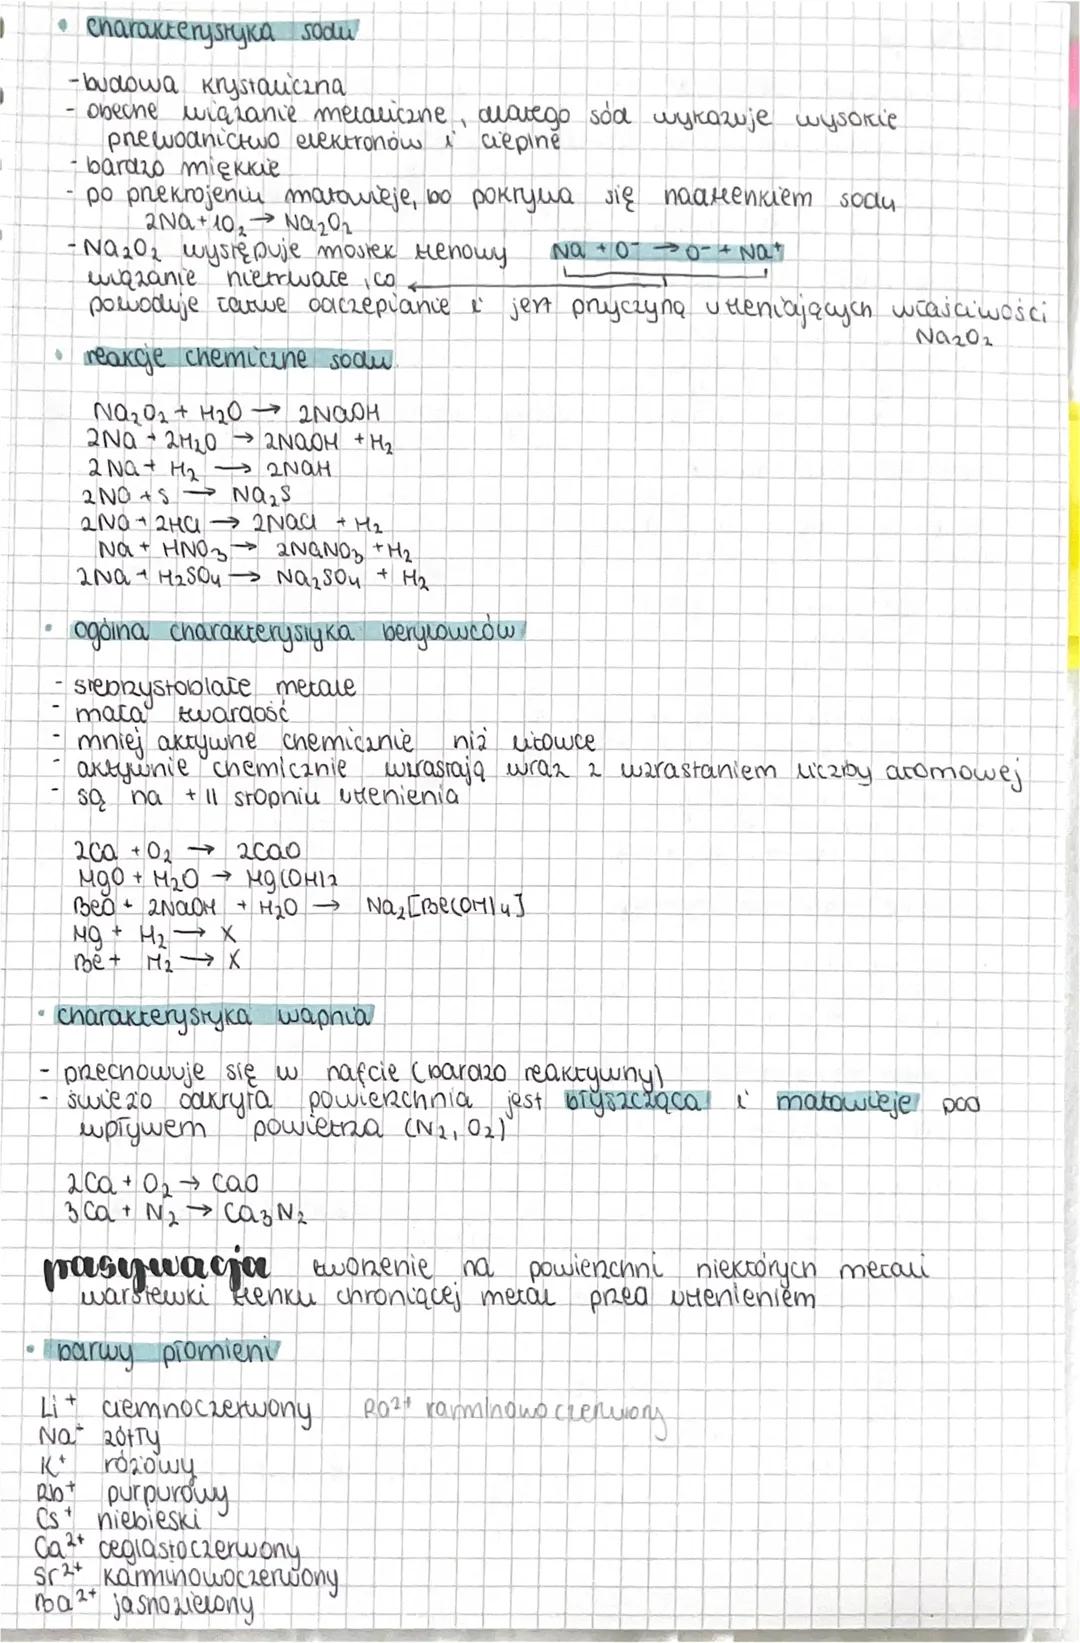 • charakterystyka sodu
- budowa krystaliczna
- obecne wiązanie metaliczne, dlatego sód wykazuje wysokie
przewodnictwo elektronów i cieplne
- bardzo miękkie
- po przekrojeniu matowieje, bo pokrywa się nadtlenkiem sodu
2Na + 1O₂ → Na₂O₂
- Na₂O₂ występuje mostek tlenowy Na + O⁻ → O⁻ + Na⁺
wiązanie nietrwałe, co
powoduje łatwe odczepianie i jest przyczyną utleniających właściwości
Na₂O₂
• reakcje chemiczne sodu
Na₂O₂ + H₂O → 2NaOH
2Na + 2H₂O → 2NaOH + H₂
2Na + H₂ → 2NaH
2NO + S → Na₂S
2Na + 2HCl → 2NaCl + H₂
Na + HNO₃ → 2NaNO₃ + H₂
2Na + H₂SO₄ → Na₂SO₄ + H₂
• ogólna charakterystyka berylowców
- srebrzystobiałe metale
- mała twardość
- mniej aktywne chemicznie niż litowce
- aktywnie chemicznie wzrastają wraz z wzrastaniem liczby atomowej
- są na +II stopniu utlenienia
2Ca + O₂ → 2CaO
MgO + H₂O → Mg(OH)₂
BeO + 2NaOH + H₂O → Na₂[Be(OH)₄]
Mg + H₂ → X
Be + H₂ → X
• charakterystyka wapnia
- przechowuje się w nafcie (bardzo reaktywny)
- świeżo odkryta powierzchnia jest błyszcząca i matowieje pod
wpływem powietrza (N₂, O₂)
2Ca + O₂ → CaO
3Ca + N₂ → Ca₃N₂
pasywacja tworzenie na powierzchni niektórych metali
warstewki tlenku chroniącej metal przed utlenieniem
• barwy płomieni
Li⁺ ciemnoczerwony Ra²⁺ karminowoczerwony
Na⁺ żółty
K⁺ różowy
Rb⁺ purpurowy
Cs⁺ niebieski
Ca²⁺ ceglastoczerwony
Sr²⁺ karminowoczerwony
Ba²⁺ jasnozielony